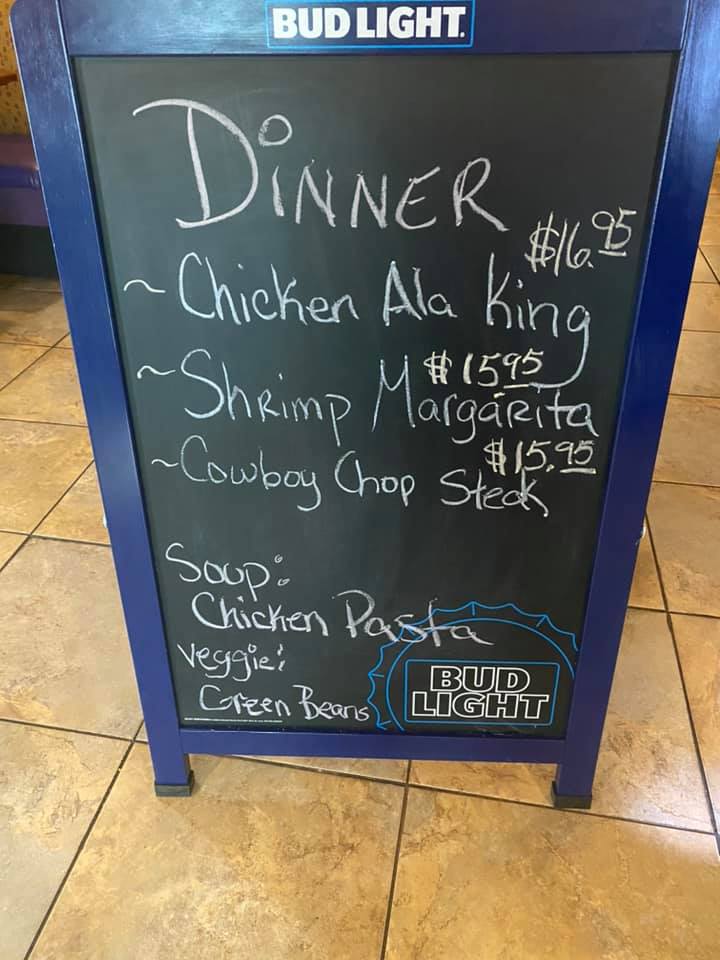 BUD LIGHT.
DINNER
$16.95
~ Chicken Ala King
$15.95
~ Shrimp Margarita
$15.95
~ Cowboy Chop Steak
Soup:
Chicken Pasta
Veggie:
Green Beans
BUD
LIGHT